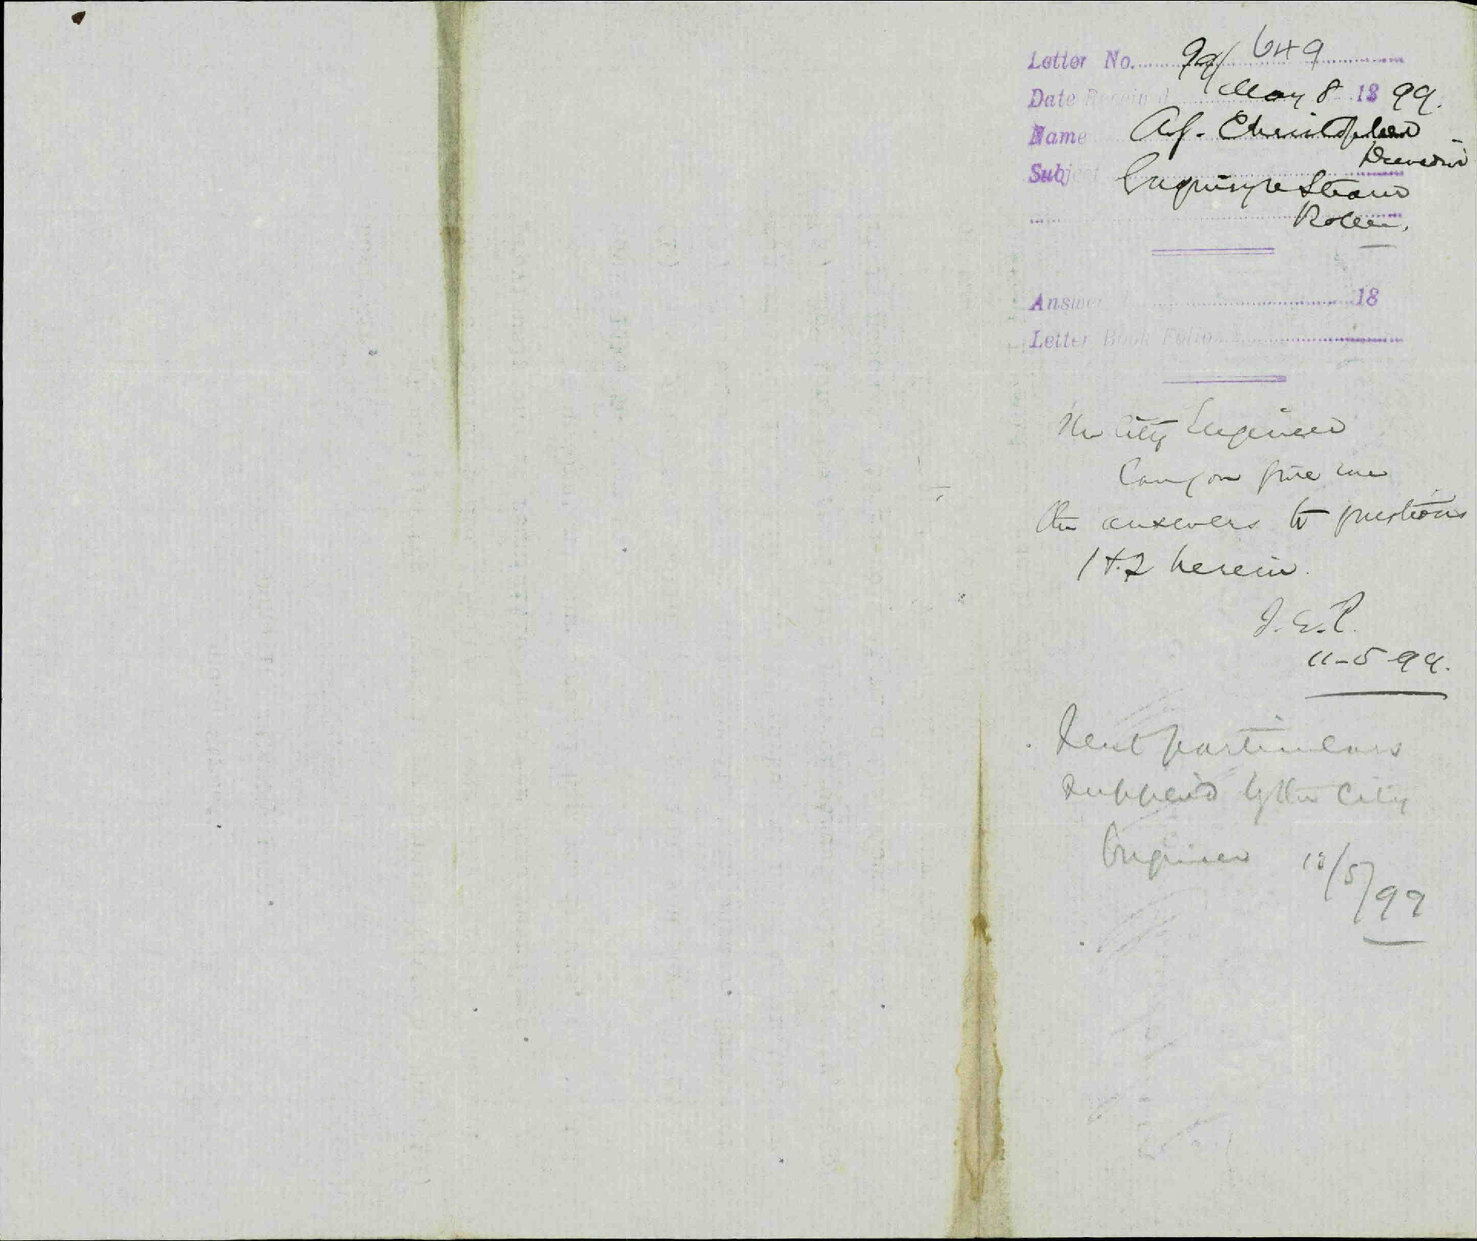 Letter No. 99/649
Date Received May 8 1899.
Name A.J. Christopherd
Dunedin
Subject Enquiry re Steam
Roller.
Answer 18
Letter Book Folio
The City Engineer
Can you give me
the answers to questions
1 & 2 herein.
11-5-99.
Sent particulars
supplied by the City
Engineer 18/5/99